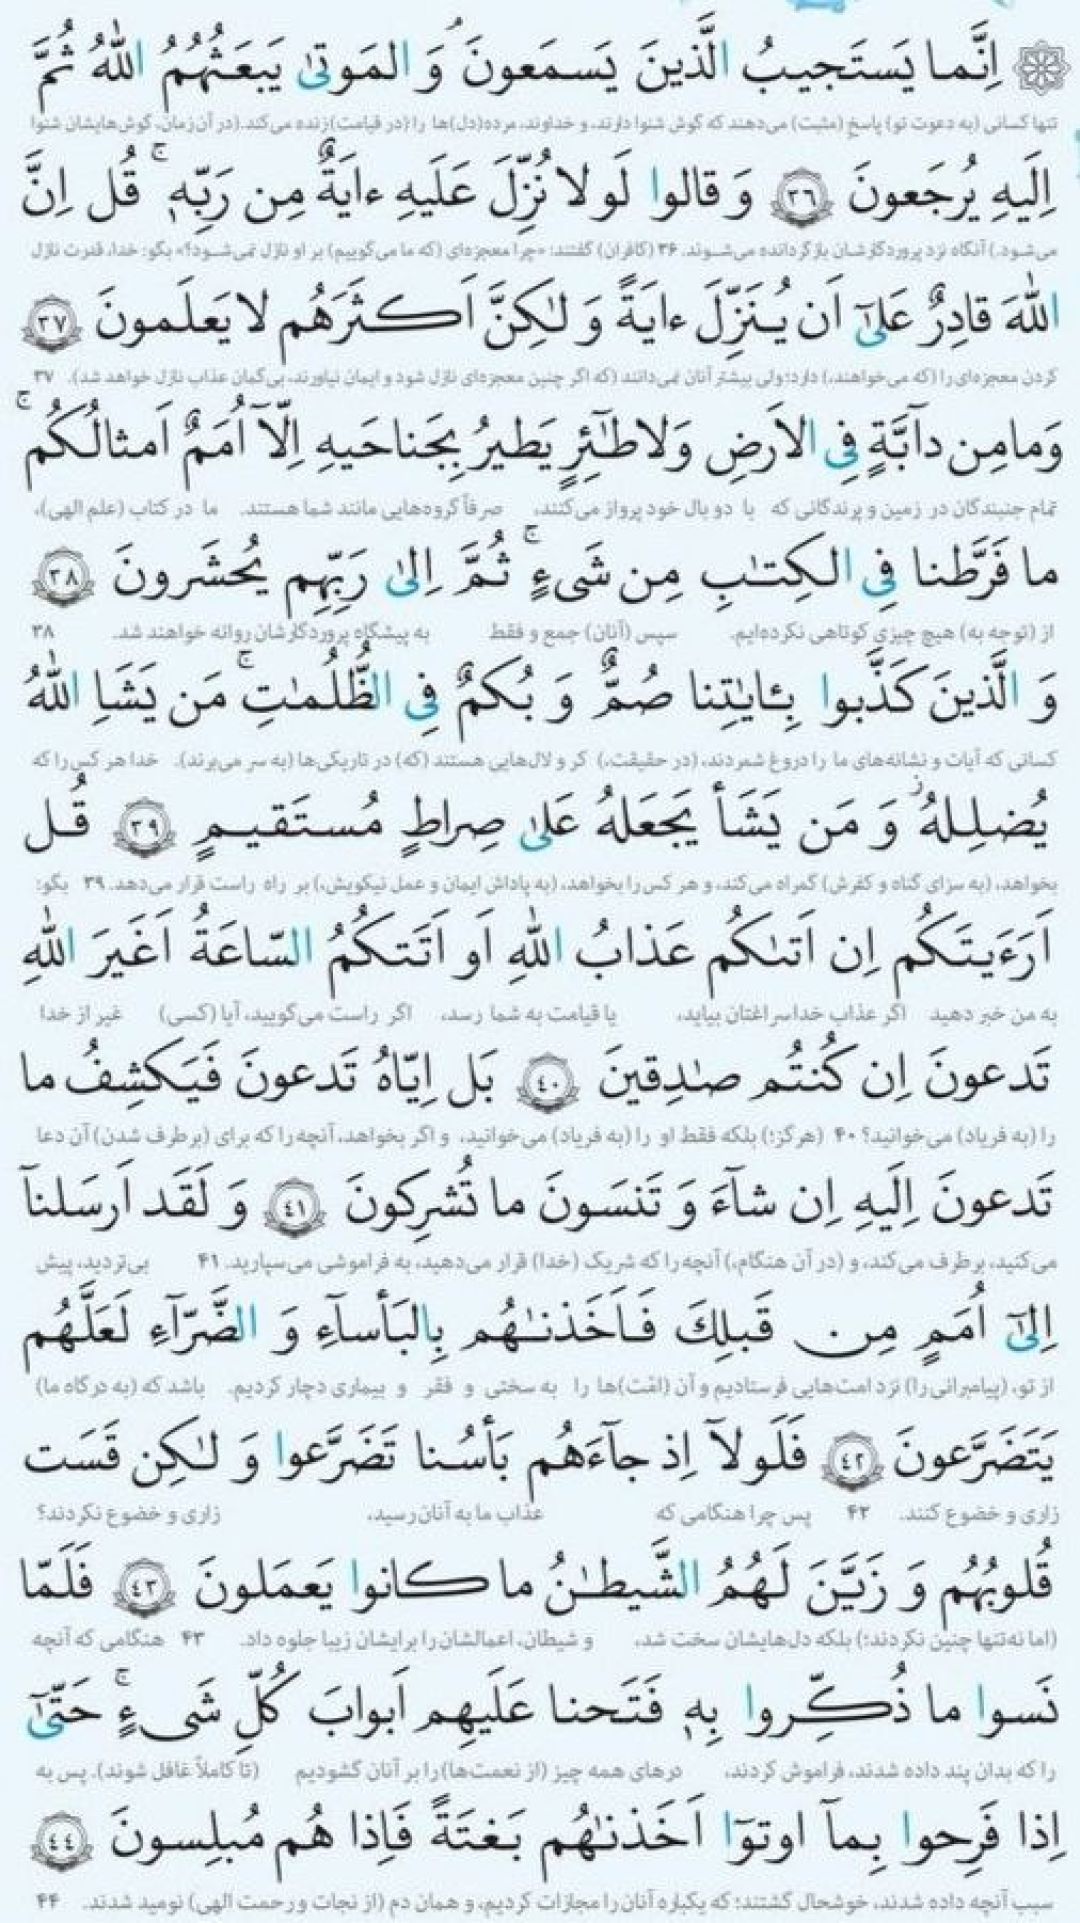 اِنَّما يَستَجيبُ الَّذينَ يَسمَعونَ ۘ وَ المَوتىٰ يَبعَثُهُمُ اللّٰهُ ثُمَّ
تنها کسانی (به دعوت تو) پاسخ (مثبت) می‌دهند که گوش شنوا دارند، و خداوند، مرده(دل)ها را (در قیامت) زنده می‌کند. (در آن زمان، گوش‌هایشان شنوا
اِلَيهِ يُرجَعونَ ٣٦ وَ قالوا لَولا نُزِّلَ عَلَيهِ ءايَةٌ مِن رَبِّهٖ ۚ قُل اِنَّ
می‌شود.) آنگاه نزد پروردگارشان بازگردانده می‌شوند. ۳۶ (کافران) گفتند: «چرا معجزه‌ای (که ما می‌گوییم) بر او نازل نمی‌شود؟» بگو: خدا، قدرت نازل
اللّٰهَ قادِرٌ عَلىٰٓ اَن يُنَزِّلَ ءايَةً وَ لٰكِنَّ اَكثَرَهُم لا يَعلَمونَ ٣٧
کردن معجزه‌ای را (که می‌خواهند،) دارد؛ ولی بیشتر آنان نمی‌دانند (که اگر چنین معجزه‌ای نازل شود و ایمان نیاورند، بی‌گمان عذاب نازل خواهد شد). ۳۷
وَما مِن دآبَّةٍ فِى الاَرضِ وَلا طٰٓئِرٍ يَطيرُ بِجَناحَيهِ اِلّآ اُمَمٌ اَمثالُكُم ۚ
تمام جنبندگان در زمین و پرندگانی که با دو بال خود پرواز می‌کنند، صرفاً گروه‌هایی مانند شما هستند. ما در کتاب (علم الهی)،
ما فَرَّطنا فِى الكِتٰبِ مِن شَىءٍ ۚ ثُمَّ اِلىٰ رَبِّهِم يُحشَرونَ ٣٨
از (توجه به) هیچ چیزی کوتاهی نکرده‌ایم. سپس (آنان) جمع و فقط به پیشگاه پروردگارشان روانه خواهند شد. ۳۸
وَ الَّذينَ كَذَّبوا بِـٔايٰتِنا صُمٌّ وَ بُكمٌ فِى الظُّلُمٰتِ ۚ مَن يَشَاِ اللّٰهُ
کسانی که آیات و نشانه‌های ما را دروغ شمردند، (در حقیقت،) کر و لال‌هایی هستند (که) در تاریکی‌ها (به سر می‌برند). خدا هر کس را که
يُضلِلهُ ز وَ مَن يَشَأ يَجعَلهُ عَلىٰ صِراطٍ مُستَقيمٍ ٣٩ قُل
بخواهد، (به سزای گناه و کفرش) گمراه می‌کند، و هر کس را بخواهد، (به پاداش ایمان و عمل نیکویش،) بر راه راست قرار می‌دهد. ۳۹ بگو:
اَرَءَيتَكُم اِن اَتىٰكُم عَذابُ اللّٰهِ اَو اَتَتكُمُ السّاعَةُ اَغَيرَ اللّٰهِ
به من خبر دهید اگر عذاب خدا سراغتان بیاید، یا قیامت به شما رسد، اگر راست می‌گویید، آیا (کسی) غیر از خدا
تَدعونَ اِن كُنتُم صٰدِقينَ ٤٠ بَل اِيّاهُ تَدعونَ فَيَكشِفُ ما
را (به فریاد) می‌خوانید؟ ۴۰ (هرگز؛) بلکه فقط او را (به فریاد) می‌خوانید، و اگر بخواهد، آنچه را که برای (برطرف شدن) آن دعا
تَدعونَ اِلَيهِ اِن شآءَ وَ تَنسَونَ ما تُشرِكونَ ٤١ وَ لَقَد اَرسَلنآ
می‌کنید، برطرف می‌کند، و (در آن هنگام،) آنچه را که شریک (خدا) قرار می‌دهید، به فراموشی می‌سپارید. ۴۱ بی‌تردید، پیش
اِلىٰٓ اُمَمٍ مِن قَبلِكَ فَاَخَذنٰهُم بِالبَأسآءِ وَ الضَّرّآءِ لَعَلَّهُم
از تو، (پیامبرانی را) نزد امت‌هایی فرستادیم و آن (امّت)ها را به سختی و فقر و بیماری دچار کردیم. باشد که (به درگاه ما)
يَتَضَرَّعونَ ٤٢ فَلَولآ اِذ جآءَهُم بَأسُنا تَضَرَّعوا وَ لٰكِن قَسَت
زاری و خضوع کنند. ۴۲ پس چرا هنگامی که عذاب ما به آنان رسید، زاری و خضوع نکردند؟
قُلوبُهُم وَ زَيَّنَ لَهُمُ الشَّيطٰنُ ما كانوا يَعمَلونَ ٤٣ فَلَمّا
(اما نه‌تنها چنین نکردند؛) بلکه دل‌هایشان سخت شد، و شیطان، اعمالشان را برایشان زیبا جلوه داد. ۴۳ هنگامی که آنچه
نَسوا ما ذُكِّروا بِهٖ فَتَحنا عَلَيهِم اَبوابَ كُلِّ شَىءٍ ۚ حَتّىٰٓ
را که بدان پند داده شدند، فراموش کردند، درهای همه چیز (از نعمت‌ها) را بر آنان گشودیم (تا کاملاً غافل شوند). پس به
اِذا فَرِحوا بِمآ اوتوٓا اَخَذنٰهُم بَغتَةً فَاِذا هُم مُبلِسونَ ٤٤
سبب آنچه داده شدند، خوشحال گشتند؛ که یکباره آنان را مجازات کردیم، و همان دم (از نجات و رحمت الهی) نومید شدند. ۴۴